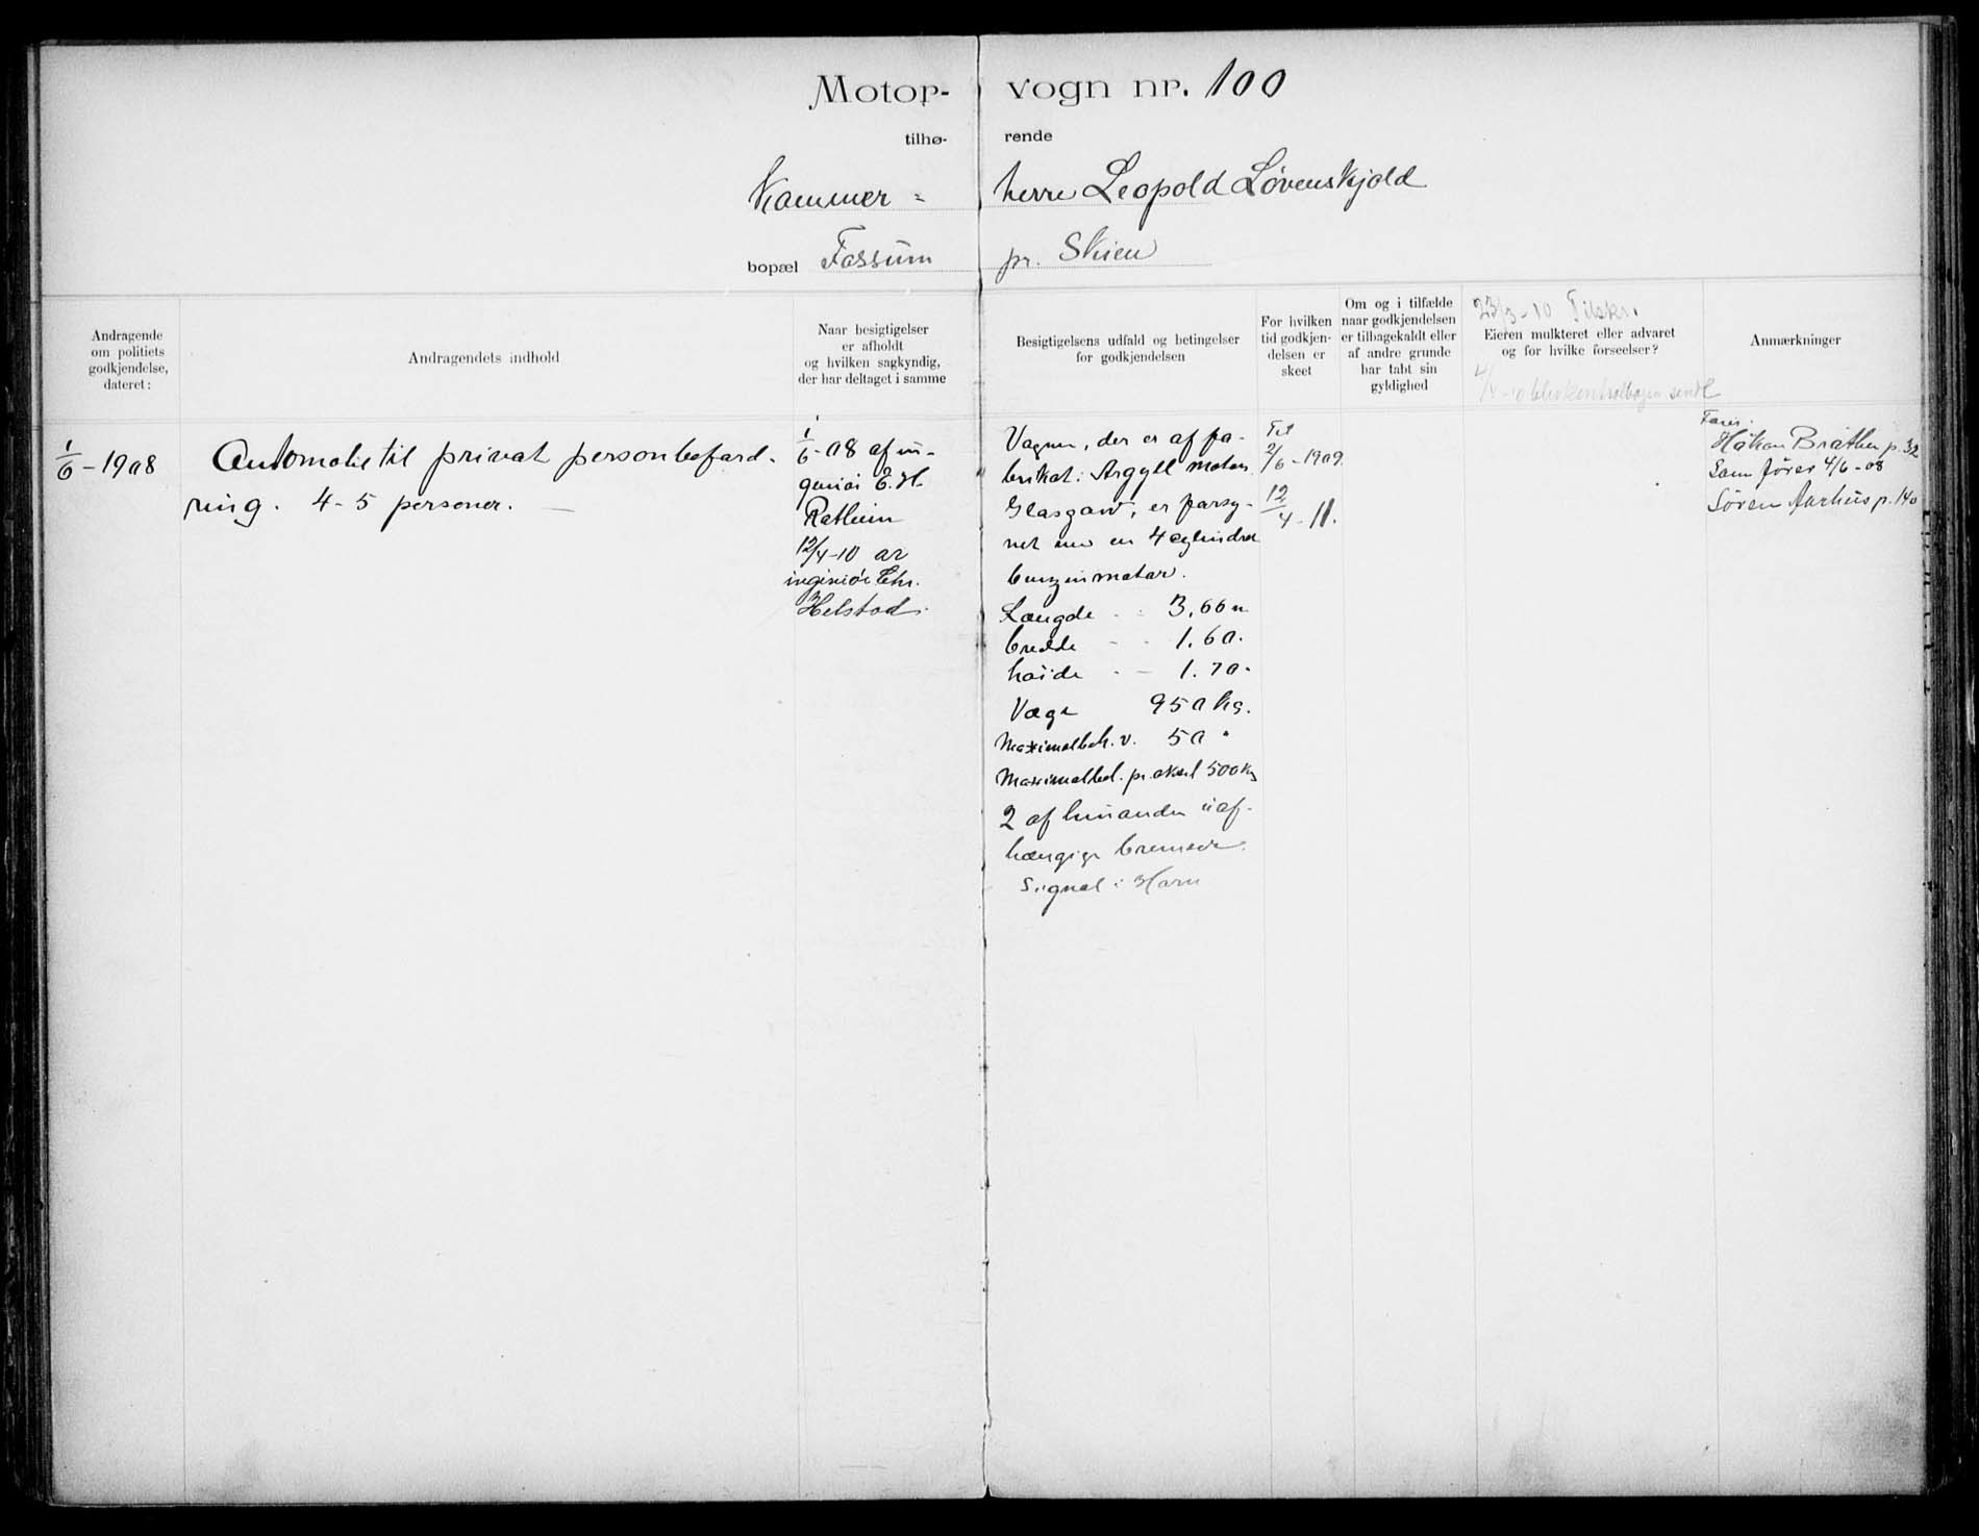 Motor- vogn nr. 100
tilhø- rende
Kammer= herre Leopold Løvenskjold
bopæl Fossum pr. Skien
Andragende
om politiets
godkjendelse,
dateret:
Andragendets indhold
Naar besigtigelser
er afholdt
og hvilken sagkyndig,
der har deltaget i samme
Besigtigelsens udfald og betingelser
for godkjendelsen
For hvilken
tid godkjen-
delsen er
skeet
Om og i tilfælde
naar godkjendelsen
er tilbagekaldt eller
af andre grunde
har tabt sin
gyldighed
23/3-10 Tilskr.
Eieren mulkteret eller advaret
og for hvilke forseelser?
sendt
Anmærkninger
1/6-1908
Automobil til privat personbeford-
ring. 4-5 personer.
1/6-08 af in-
geniør E. H.
Rathein
12/4-10 av
ingeniør Chr.
Helstad.
Vognen, der er af fa-
brikat: Argyll motors
Glasgow, er forsy-
net med en 4 cylindret
benzinmotor.
Længde 3.66 m
bredde 1.60.
høide 1.70.
Vægt 950 kg.
Maximalbel. pr. aksel 500 kg
2 af hinanden uaf-
hængige bremser.
Signal: Horn
Til
2/6-1909
12/4-11.
Fører:
Håkon Bråthen p. 32
Som fører 4/6-08
Søren Aarhus p. 140